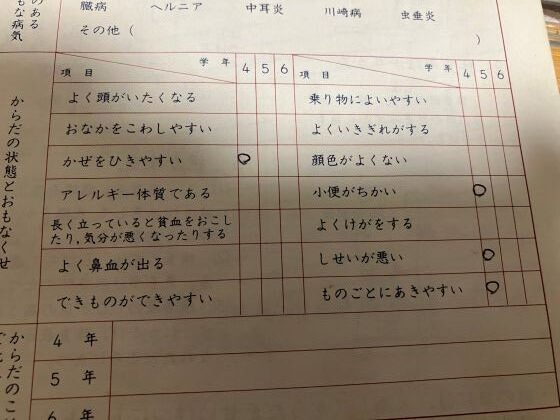 のある
もな病気
臓病 ヘルニア 中耳炎 川崎病 虫垂炎
その他( )
からだの状態とおもなくせ
項目 学年 4 5 6
よく頭がいたくなる
おなかをこわしやすい
かぜをひきやすい ○
アレルギー体質である
長く立っていると貧血をおこし
たり,気分が悪くなったりする
よく鼻血が出る
できものができやすい
項目 学年 4 5 6
乗り物によいやすい
よくいきぎれがする
顔色がよくない
小便がちかい ○
よくけがをする
しせいが悪い ○
ものごとにあきやすい ○
からだのこ
4年
5年
6年